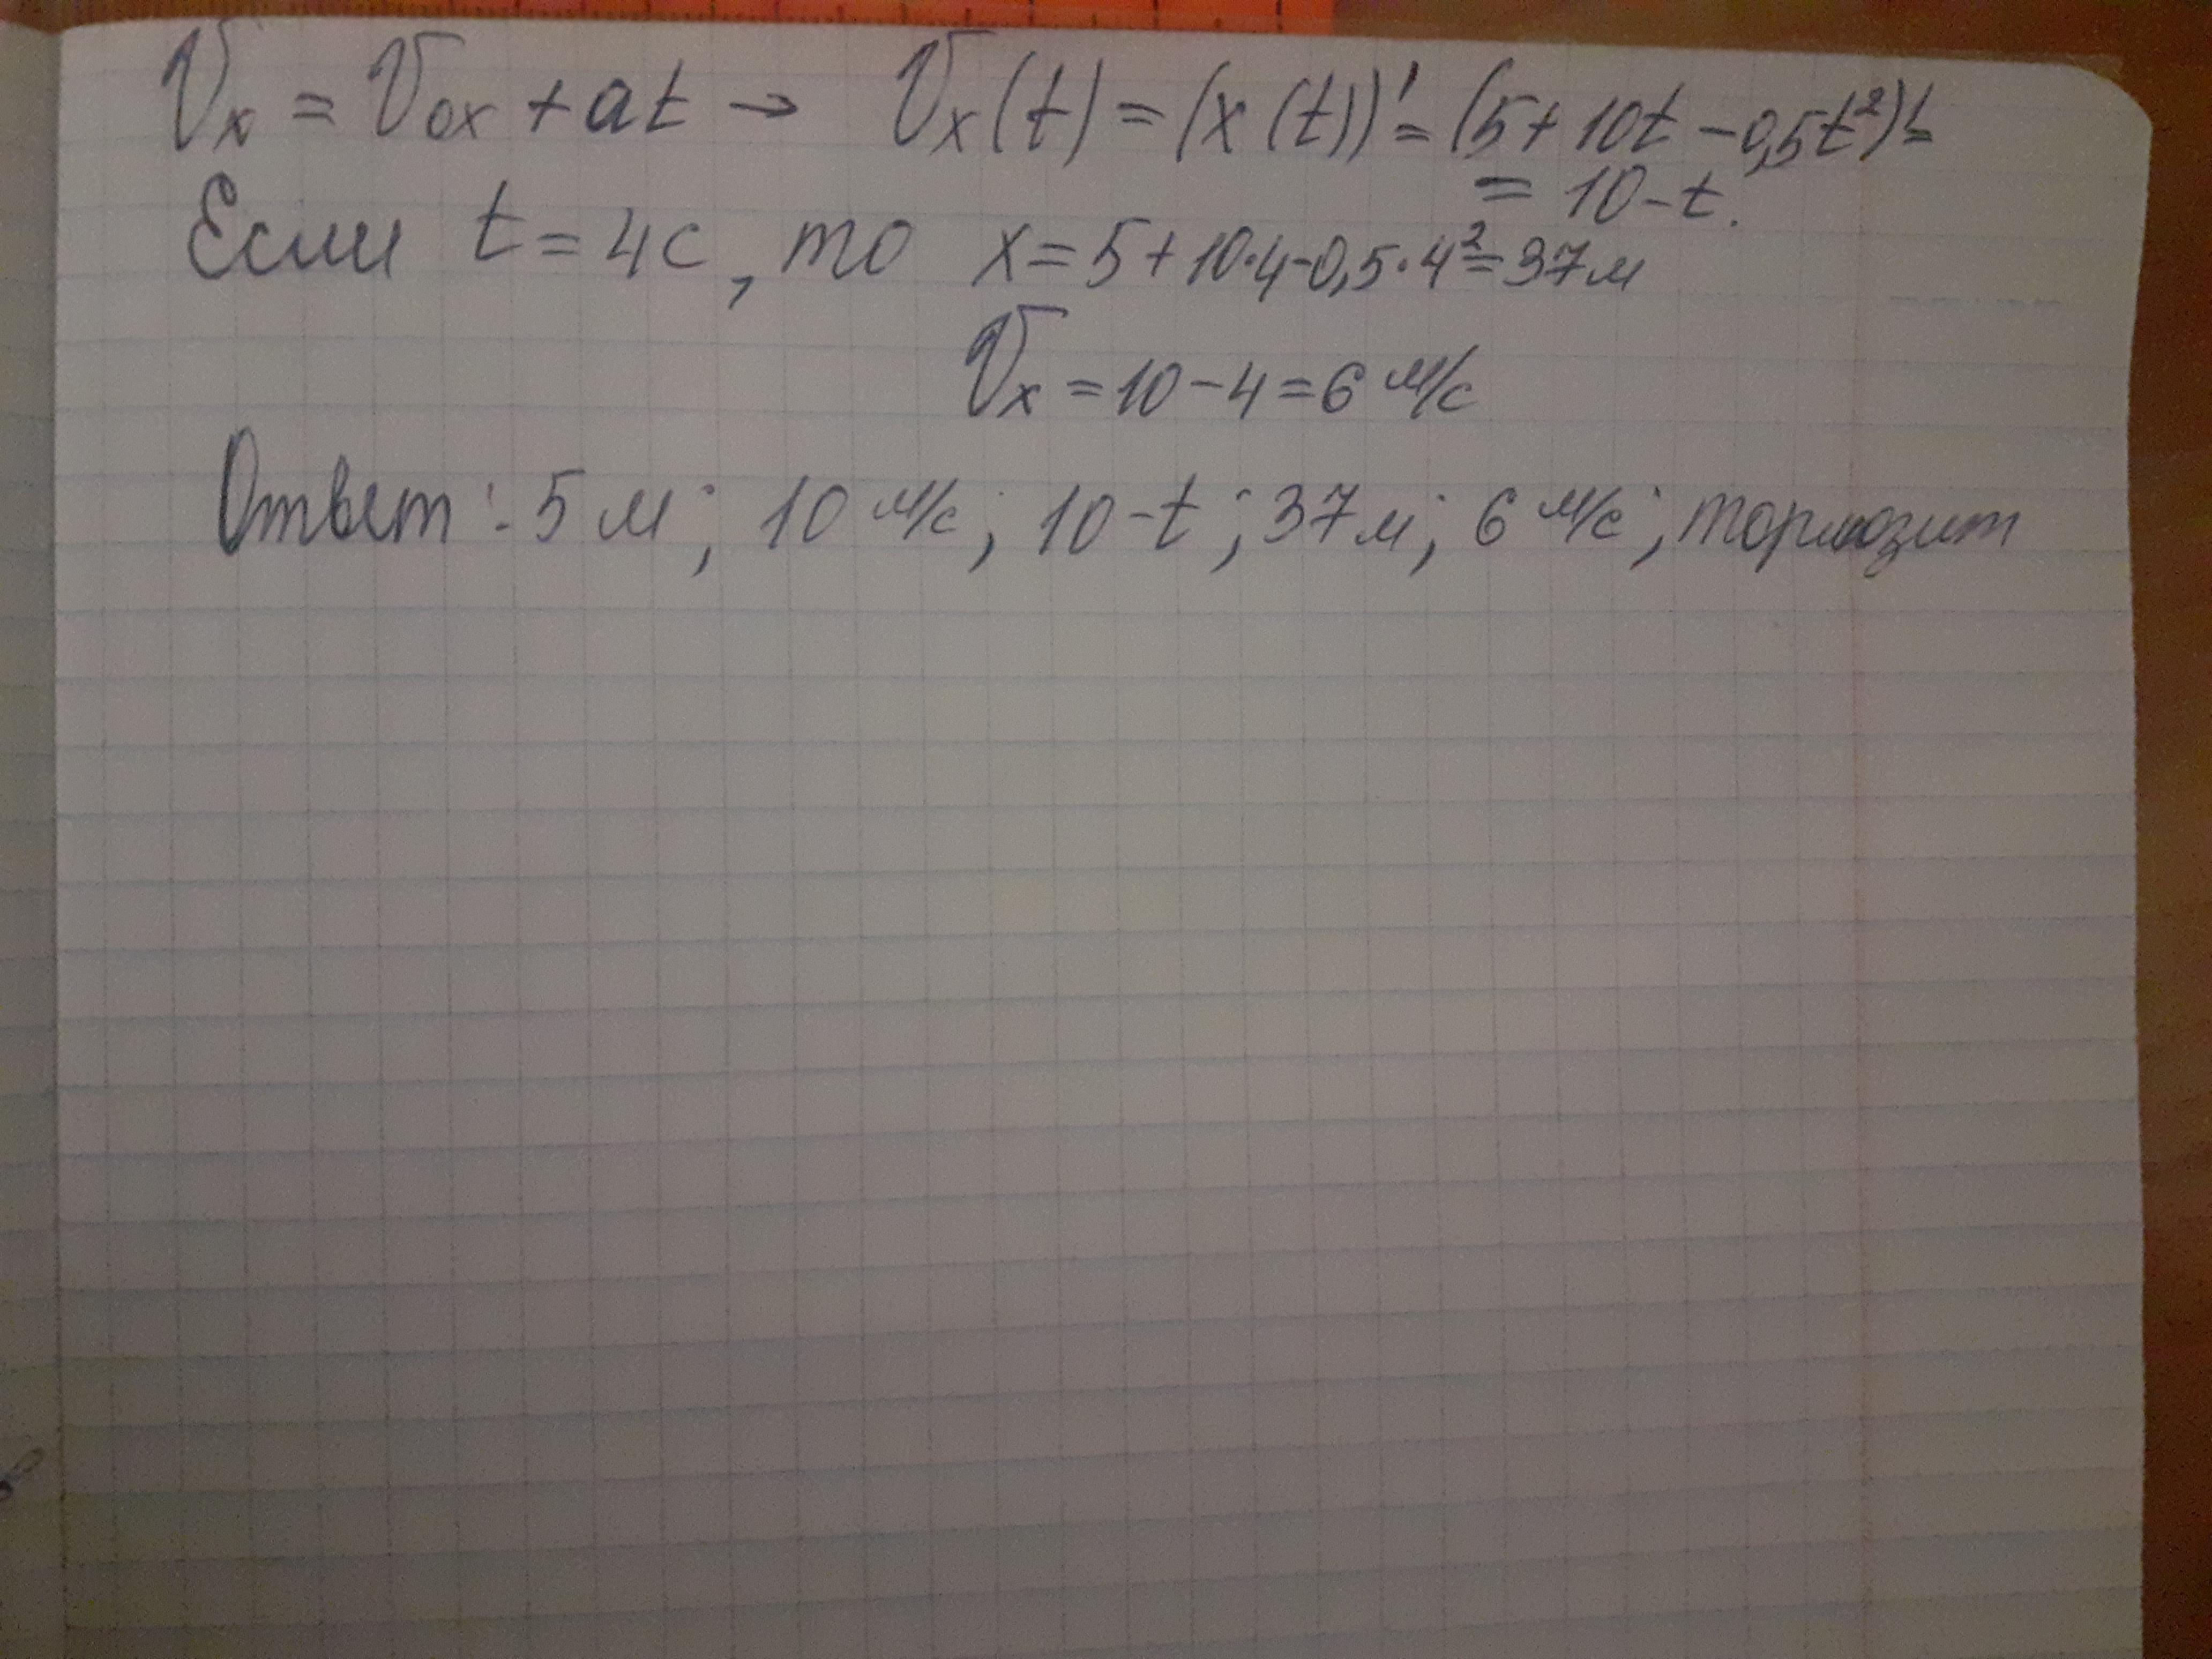 Vx = V0x + at → Vx(t) = (x(t))' = (5 + 10t - 0,5t²)' =
= 10 - t.
Если t = 4с, то x = 5 + 10·4 - 0,5·4² = 37м
Vx = 10 - 4 = 6 м/с
Ответ: 5 м; 10 м/с; 10 - t; 37м; 6 м/с; тормозит